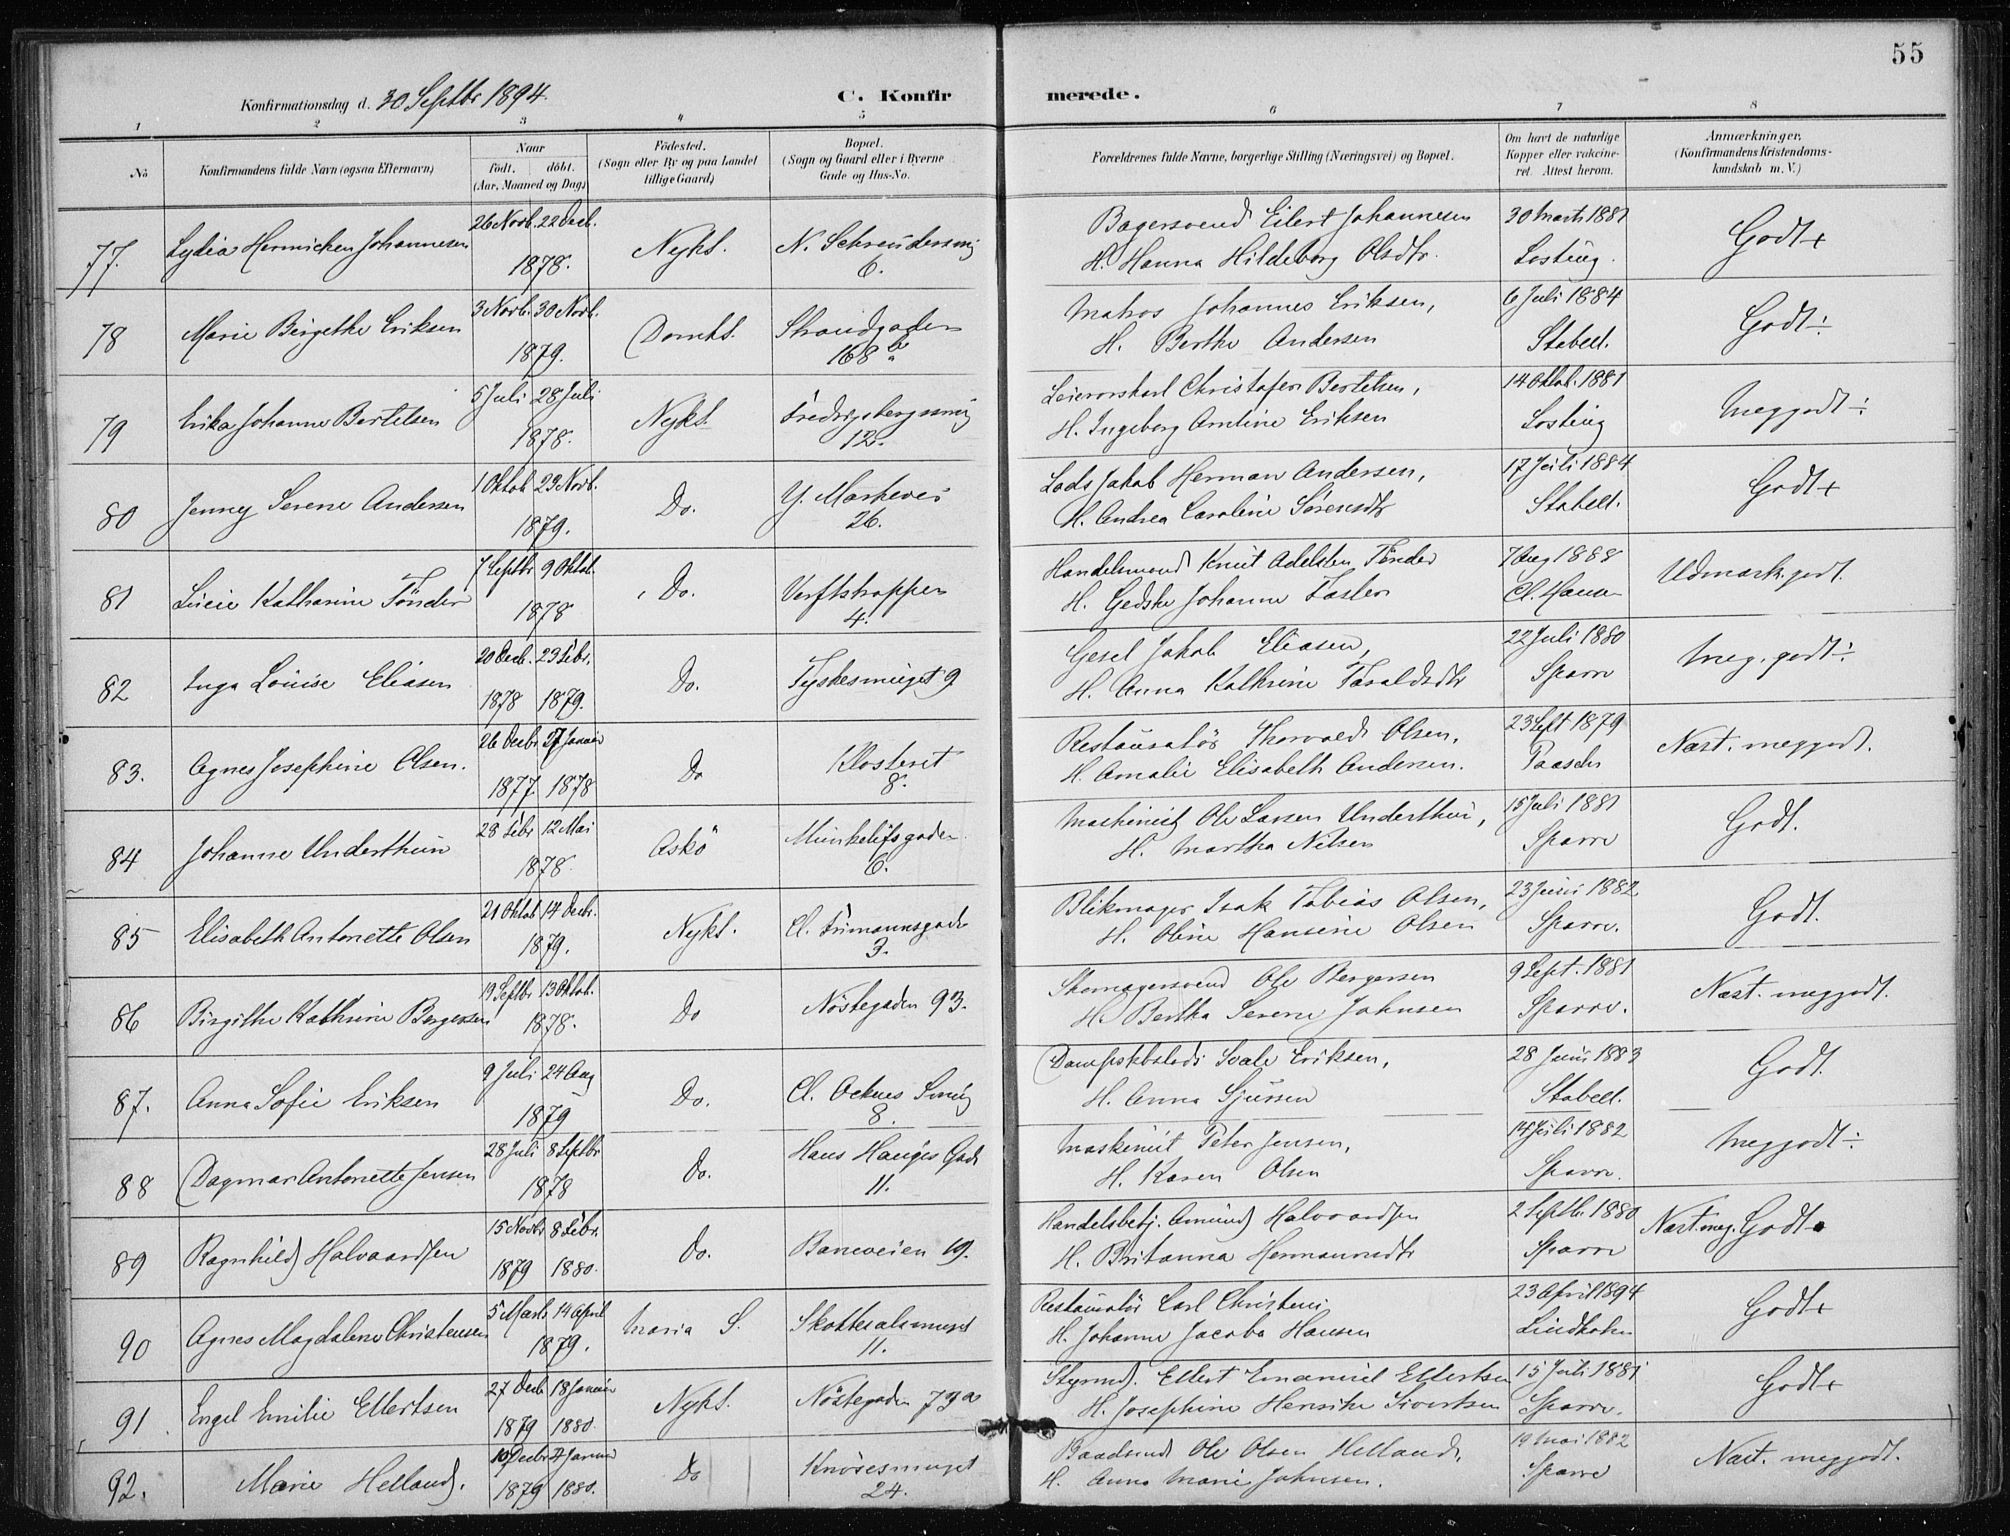 55
Konfirmationsdag d. 30 Septbr 1894.
C. Konfirmerede.
1 2 3 4 5 6 7 8
No
Konfirmandens fulde Navn (ogsaa Efternavn)
Naar
födt. döbt.
(Aar, Maaned og Dag)
Födested.
(Sogn eller By og paa Landet
tillige Gaard)
Bopæl.
(Sogn og Gaard eller i Byerne
Gade og Hus-No.
Forældrenes fulde Navne, borgerlige Stilling (Næringsvei) og Bopæl.
Om havt de naturlige
Kopper eller vakcine-
ret. Attest herom.
Anmærkninger.
(Konfirmandens Kristendoms-
kundskab m. V.)
77. Lydia Hermichen Johannesen 26 Novb. 22 Decb. 1878. Nykt. N. Schreudersmg 6.
Bagersvend Eilert Johannesen 30 Marts 1881 Godt+
H. Hanna Hildeborg Olsdtr. Losting.
78 Marie Birgethe Eriksen 3 Novb. 30 Novb. 1879. Domk. Strandgaden 168 b
Matros Johannes Eriksen, 6 Juli 1884 Godt÷
H. Berthe Andersen Stabell.
79 Erika Johanne Bertelsen 5 Juli 28 Juli 1878. Nykt. Fredrigsbergssmg 12.
Christofer Bertelsen, 14 Oktob. 1881 Meggodt÷
H. Ingeborg Amline Eriksen Losting
80 Jenny Serene Andersen 1 Oktob 29 Novb. 1879. Do. Y. Markevei 26.
Lods Jakob Herman Andersen, 17 Juli 1884 Godt+
H. Andrea Caroline Sörensdtr Stabell.
81 Lucie Katharine Tönder 7 Septbr 9 Oktob. 1878 Do. Verftstrappen 4.
Handelsmand Knut Adelsten Tönder 7 Aug 1888 Udmærk. godt.
H. Gedske Johanne Faster Cl. Hana
82 Inga Louise Eliasen 20 Decb. 23 Febr. 1878 1879. Do. Tyskesmuget 9
Gesel Jakob Eliasen, 22 Juli 1880 Meg. godt÷
H. Anna Kathrine Taraldsdtr Sparre
83. Agnes Josephine Olsen. 26 Decbr 27 Januar 1877. 1878 Do Klosteret 8.
Restauratör Thorvald Olsen, 23 Sept 1879 Næst. meggodt.
H. Amalie Elisabeth Andersen. Paasche
84 Johanne Underthun 28 Febr 12 Mai 1878. Askö Munkelifsgaden 6.
Maskinist Ole Larsen Underthun, 15 Juli 1881 Godt.
H. Martha Nilsen Sparre
85 Elisabeth Antonette Olsen 21 Oktob 14 Decbr. 1879. Nykt. Cl. Frimannsgade 3.
Blikmager Isak Tobias Olsen, 23 Juni 1882 Godt.
H. Oline Hansine Olsen Sparre.
86 Birgithe Kathrine Bergersen 19 Septbr 13 Oktob. 1878. Do Nöstegaden 93.
Skomagersvend Ole Bergersen 9 Sept. 1881 Næst. meggodt.
H. Bertha Serene Johnsen Sparre.
87. Anna Sofie Eriksen 9 Juli 24 Aug 1879 Do. Cl. Ockens Smug 8.
Dampskbslods Svale Eriksen, 28 Juni 1883 Godt.
H. Anna Sjursen Stabell.
88 Dagmar Antonette Jensen 28 Juli 8 Septbr 1878 Do. Hans Hauges Gade 11.
Maskinist Peter Jensen, 14 Juli 1882 Meggodt÷
H. Karen Olsen Sparre.
89 Ragnhild Halvaardsen 15 Novbr 8 Febr. 1879 1880. Do. Baneveien 19.
Handelsbetj. Amund Halvaardsen 2 Septb. 1880 Næst. meg. Godt
H. Britanna Hermannsdtr Sparre
90 Agnes Magdalene Christensen 5 Marts 14 April 1879. Maria S. Skottesalsmuget 11.
Restauratör Carl Christens 23 April 1894 Godt+
H. Johanne Jacoba Hansen Lindholm
91 Engel Emilie Ellertsen 27 Decb 18 Januar 1879 1880. Nykt. Nöstegaden 73a
Styrmd. Ellert Emanuel Ellertsen 15 Juli 1881 Godt+
H. Josephine Henrike Sivertsen Sparre.
92. Marie Helland. 10 Decbr 4 Januar 1879 1880. Do Knösesmuget 24.
Baadsmd Ole Olsen Helland, 19 Mai 1882 Næst. meggodt.
H. Anna Marie Johnsen. Sparre